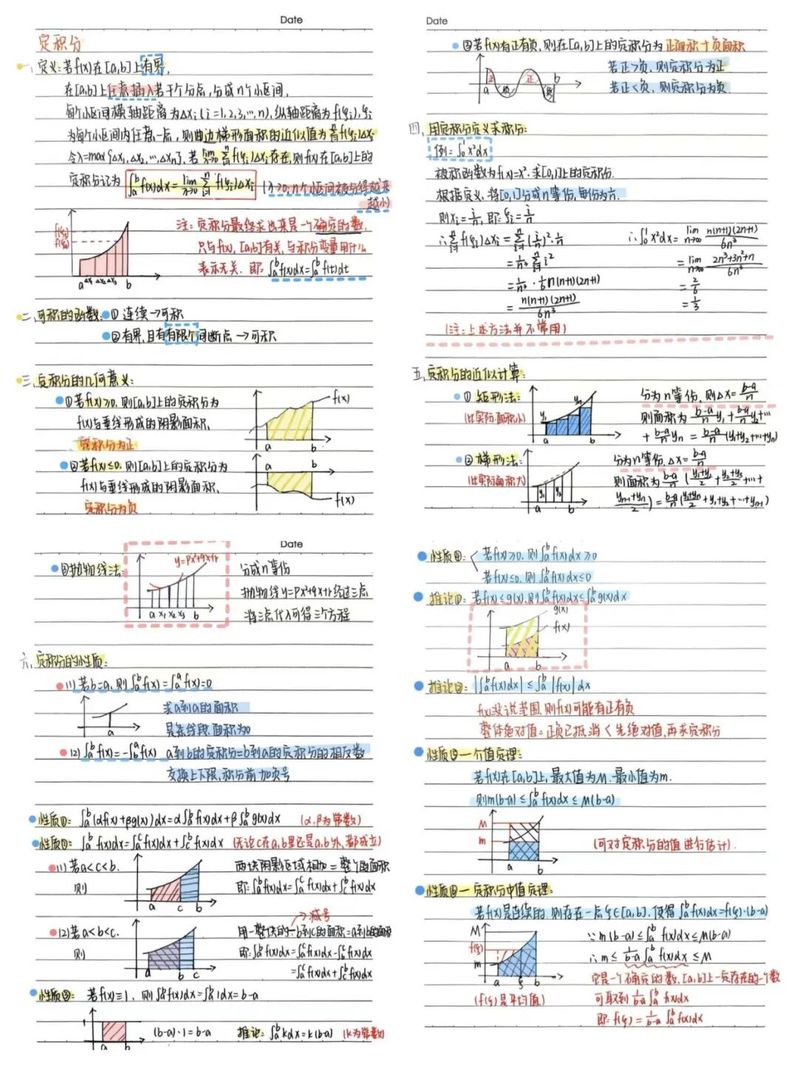 Date
定积分
一、定义:若f(x)在[a,b]上有界,
在[a,b]上任意插入若干个分点,分成n个小区间,
每个小区间横轴距离为Δxi(i=1,2,3,…,n),纵轴距离为f(ξi),ξi
为每个小区间内任意一点,则曲边梯形面积的近似值为Σf(ξi)Δxi
令λ=max{Δx1,Δx2,…,Δxn},若lim Σf(ξi)Δxi存在,则f(x)在[a,b]上的
定积分记为 ∫ₐᵇf(x)dx=lim Σf(ξi)Δxi
注:定积分最终求出来是一个确定的数,
只与f(x),[a,b]有关,与积分变量用什么
表示无关. 即:∫ₐᵇf(x)dx=∫ₐᵇf(t)dt
a Δx1 Δx2 Δx3 b
二、可积的函数:① 连续→可积
②有界,且有有限个间断点→可积
三、定积分的几何意义:
①若f(x)≥0,则[a,b]上的定积分为
f(x)与垂线形成的阴影面积,
定积分为正
f(x)
a b
②若f(x)≤0,则[a,b]上的定积分为
f(x)与垂线形成的阴影面积,
定积分为负
a b
f(x)
Date
③若f(x)有正有负,则在[a,b]上的定积分为正面积+负面积
若正>负,则定积分为正
若正<负,则定积分为负
四、用定积分定义求积分:
例:∫₀¹x²dx
被积函数为f(x)=x²,求[0,1]上的定积分
根据定义,将[0,1]分成n等份,每份为1/n.
则xi=i/n,即:ξi=i/n
∴Σf(ξi)Δxi=Σ(i/n)²·1/n
=1/n³Σi²
=1/n³·1/6n(n+1)(2n+1)
=n(n+1)(2n+1)/6n³
∴∫₀¹x²dx=lim n(n+1)(2n+1)/6n³
=lim 2n³+3n²+n/6n³
=2/6
=1/3
(注:上述方法并不常用)
五、定积分的近似计算:
① 矩形法:
(比实际面积小)
a b
分为n等份,则Δx=b-a/n
则面积为b-a/n y1+b-a/n y2+…
+b-a/n yn=b-a/n(y1+y2+…+yn)
② 梯形法:
(比实际面积大)
a b
分为n等份,Δx=b-a/n
则面积为b-a/n(y1+y2/2+y2+y3/2+…+
Date
③抛物线法:
y=px²+qx+r
a x1 x2 x3 b
分成n等份
抛物线y=px²+qx+r经过三点
将三点代入可得三个方程
六、定积分的性质:
(1)若b=a,则∫ₐᵇf(x)=∫ₐᵃf(x)=0
a
求a到a的面积
是条线段,面积为0
(2)∫ₐᵇf(x)=-∫ᵇₐf(x) a到b的定积分=b到a的定积分的相反数
交换上下限,积分前加负号
性质①:∫ₐᵇ(αf(x)+βg(x))dx=α∫ₐᵇf(x)dx+β∫ₐᵇg(x)dx (α,β为常数)
性质②:∫ₐᵇf(x)dx=∫ₐᶜf(x)dx+∫ᶜᵇf(x)dx (无论c在a,b里还是a,b外,都成立)
(1)若a<c<b.
则
a c b
两块阴影区域相加=整个的面积
即:∫ₐᵇf(x)dx=∫ₐᶜf(x)dx+∫ᶜᵇf(x)dx
减号
(2)若a<b<c.
则
a b c
用一整块的-b到c的面积=a到b的面积
=∫ₐᶜf(x)dx+∫ᶜᵇf(x)dx
性质③: 若f(x)≡1, 则∫ₐᵇf(x)dx=∫ₐᵇ1dx=b-a
1
a b
(b-a)·1=b-a
推论:∫ₐᵇkdx=k(b-a) (k为常数)
若f(x)≥0,则∫ₐᵇf(x)dx≥0
若f(x)≤0,则∫ₐᵇf(x)dx≤0
推论①:若f(x)≤g(x),则∫ₐᵇf(x)dx≤∫ₐᵇg(x)dx
g(x)
f(x)
a b
推论②:|∫ₐᵇf(x)dx|≤∫ₐᵇ|f(x)|dx
f(x)没说范围,则f(x)可能有正有负
整体绝对值=正负已抵消<先绝对值,再求定积分
若f(x)在[a,b]上,最大值为M,最小值为m.
则m(b-a)≤∫ₐᵇf(x)dx≤M(b-a)
M
m
a b
(可对定积分的值进行估计)
若f(x)是连续的,则存在一点ξ∈[a,b],使得∫ₐᵇf(x)dx=f(ξ)·(b-a)
M
f(ξ)
m
a ξ b
(f(ξ)是平均值)
∵m(b-a)≤∫ₐᵇf(x)dx≤M(b-a)
∴m≤1/b-a∫ₐᵇf(x)dx≤M
它是一个确定的数,[a,b]上一定存在的一个数
可取到1/b-a∫ₐᵇf(x)dx
即:f(ξ)=1/b-a∫ₐᵇf(x)dx